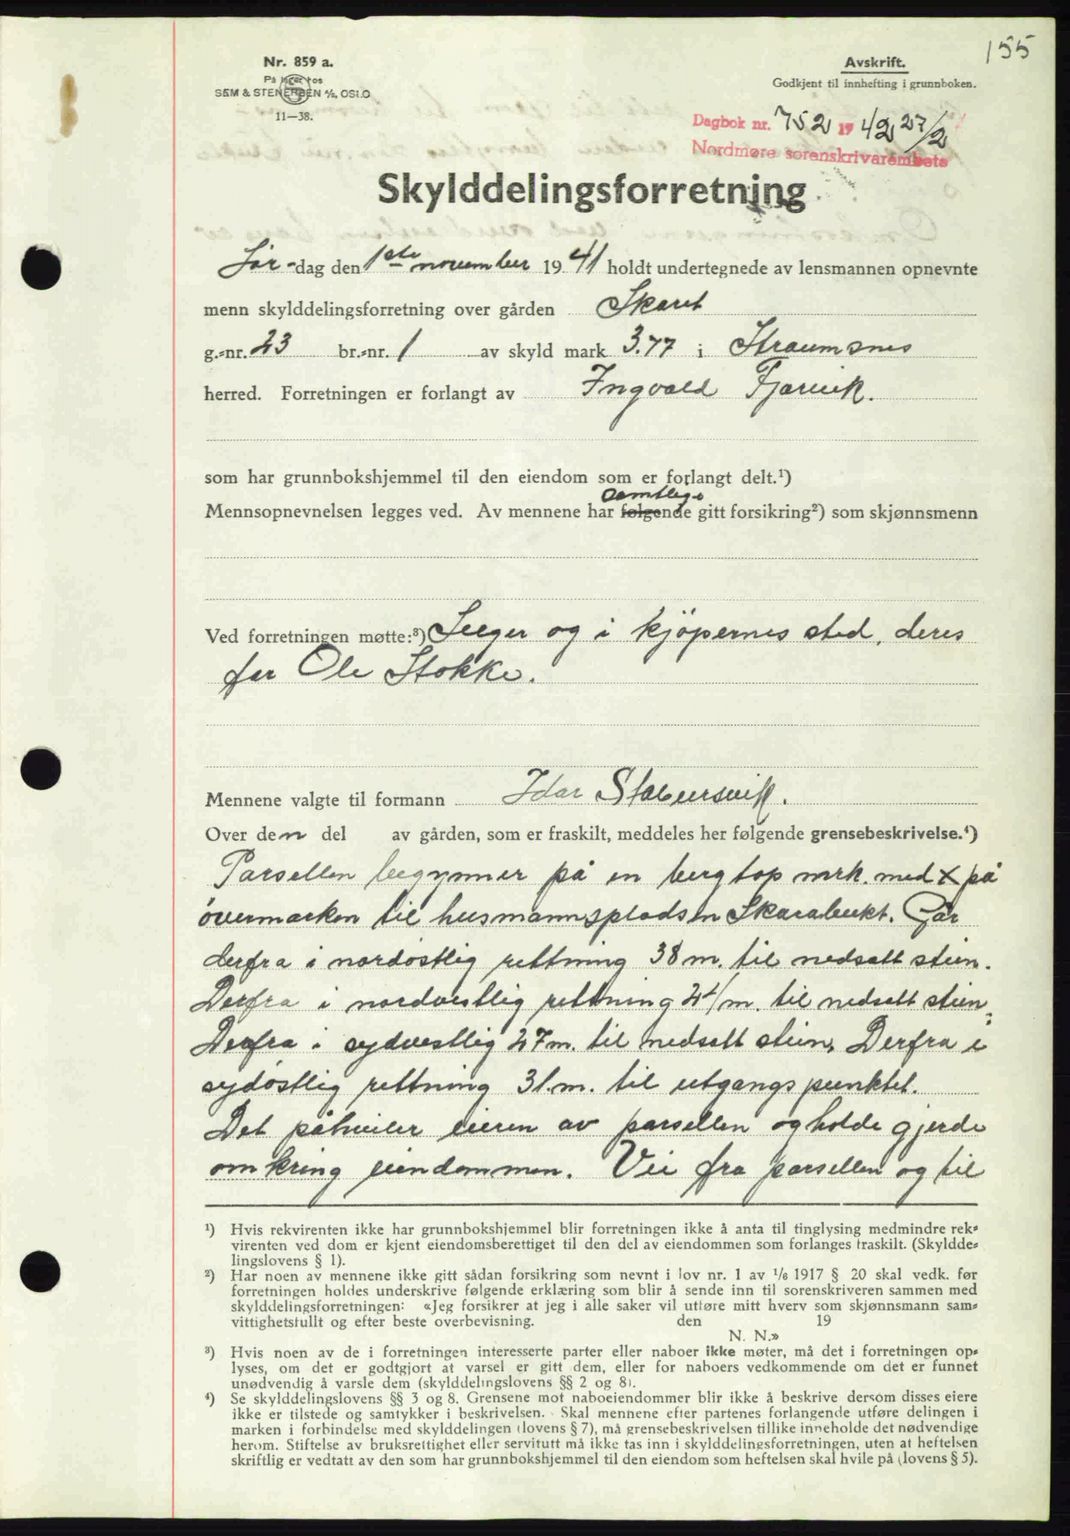 155
Nr. 859 a.
På lager hos
SEM & STENERSEN A/S, OSLO
11—38.
Avskrift.
Godkjent til innhefting i grunnboken.
Dagbok nr. 752 19 42 27/2
Nordmøre sorenskrivarembete
Skylddelingsforretning
Lør-dag den 1ste november 19 41 holdt undertegnede av lensmannen opnevnte
menn skylddelingsforretning over gården Skaret
g.=nr. 23 br.=nr. 1 av skyld mark 3.77 i Straumsnes
herred. Forretningen er forlangt av Ingvald Tjarvik.
som har grunnbokshjemmel til den eiendom som er forlangt delt.¹)
samtlige
Mennsopnevnelsen legges ved. Av mennene har følgende gitt forsikring²) som skjønnsmenn
Ved forretningen møtte:³) Selger og i kjöpernes sted, deres
far Ole Stokke.
Mennene valgte til formann Idar Stabursvik.
Over den del av gården, som er fraskilt, meddeles her følgende grensebeskrivelse.⁴)
Parsellen begynner på en bergtop mrk. med X på
övermarken til husmannspladsen Skarabukt. Går
derfra i nordöstlig rettning 38 m. til nedsatt stein.
Derfra i nordvestlig rettning 24 m. til nedsatt stein.
Derfra i sydvestlig 27 m. til nedsatt stein. Derfra i
sydöstlig rettning 31. m. til utgangspunktet.
Det påhviler eieren av parsellen og holde gjerde
omkring eiendommen. Vei fra parsellen og til
¹) Hvis rekvirenten ikke har grunnbokshjemmel blir forretningen ikke å anta til tinglysing medmindre rek=
virenten ved dom er kjent eiendomsberettiget til den del av eiendommen som forlanges fraskilt. (Skyldde=
lingslovens § 1).
²) Har noen av mennene ikke gitt sådan forsikring som nevnt i lov nr. 1 av ¹/₈ 1917 § 20 skal vedk. før
forretningen holdes underskrive følgende erklæring som blir å sende inn til sorenskriveren sammen med
skylddelingsforretningen: «Jeg forsikrer at jeg i alle saker vil utføre mitt hverv som skjønnsmann sam=
vittighetsfullt og efter beste overbevisning. den 19
N. N.»
³) Hvis noen av de i forretningen interesserte parter eller naboer ikke møter, må det i forretningen op=
lyses, om det er godtgjort at varsel er gitt dem, eller for naboers vedkommende om det er funnet
unødvendig å varsle dem (skylddelingslovens §§ 2 og 8).
⁴) Se skylddelingslovens §§ 3 og 8. Grensene mot naboeiendommer blir ikke å beskrive dersom disses eiere
ikke er tilstede og samtykker i beskrivelsen. Skal mennene efter partenes forlangende utføre delingen i
marken i forbindelse med skylddelingen (lovens § 7), må grensebeskrivelsen tillike inneholde det nødvendige
herom. Stiftelse av bruksrettighet eller servitutt må ikke tas inn i skylddelingsforretningen, uten at heftelsen
skriftlig er vedtatt av den som har grunnbokshjemmel til den eiendom som heftelsen skal hvile på (lovens § 5).